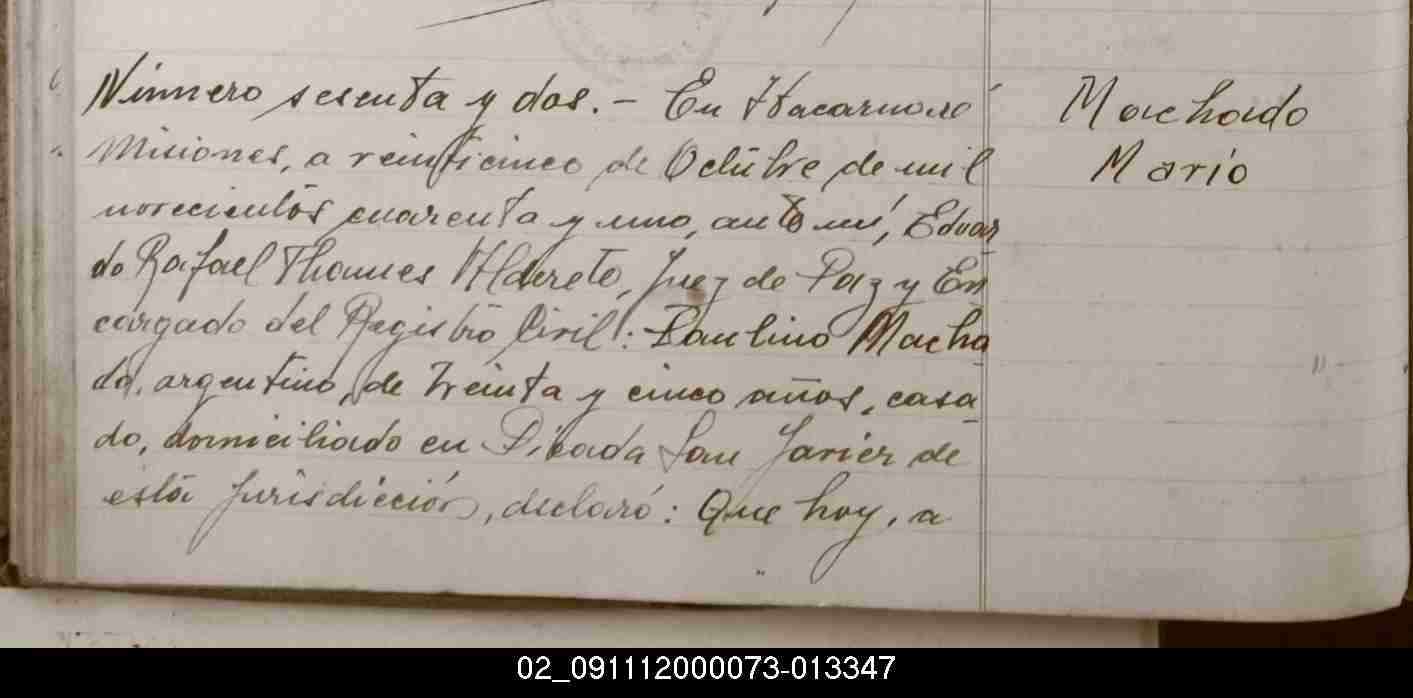 Número sesenta y dos. - En Itacaruaré
Machado
Mario
Misiones, a veinticinco de Octubre de mil
novecientos cuarenta y uno, ante mí, Eduar
do Rafael Thames Alderete, Juez de Paz y En
cargado del Registro Civil: Paulino Macha
do, argentino, de treinta y cinco años, casa
do, domiciliado en Picada San Javier de
esta jurisdicción, declaró: Que hoy, a
02_091112000073-013347